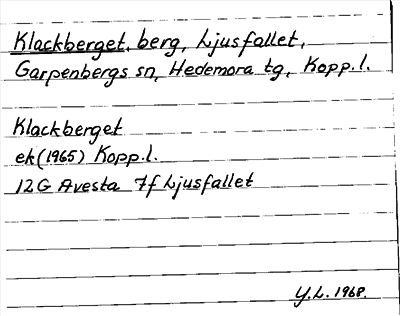 Klackberget, berg, Ljusfallet,
Garpenbergs sn, Hedemora tg, Kopp.l.
Klackberget
ek(1965) Kopp.l.
12G Avesta 7f Ljusfallet
Y.L. 1968.